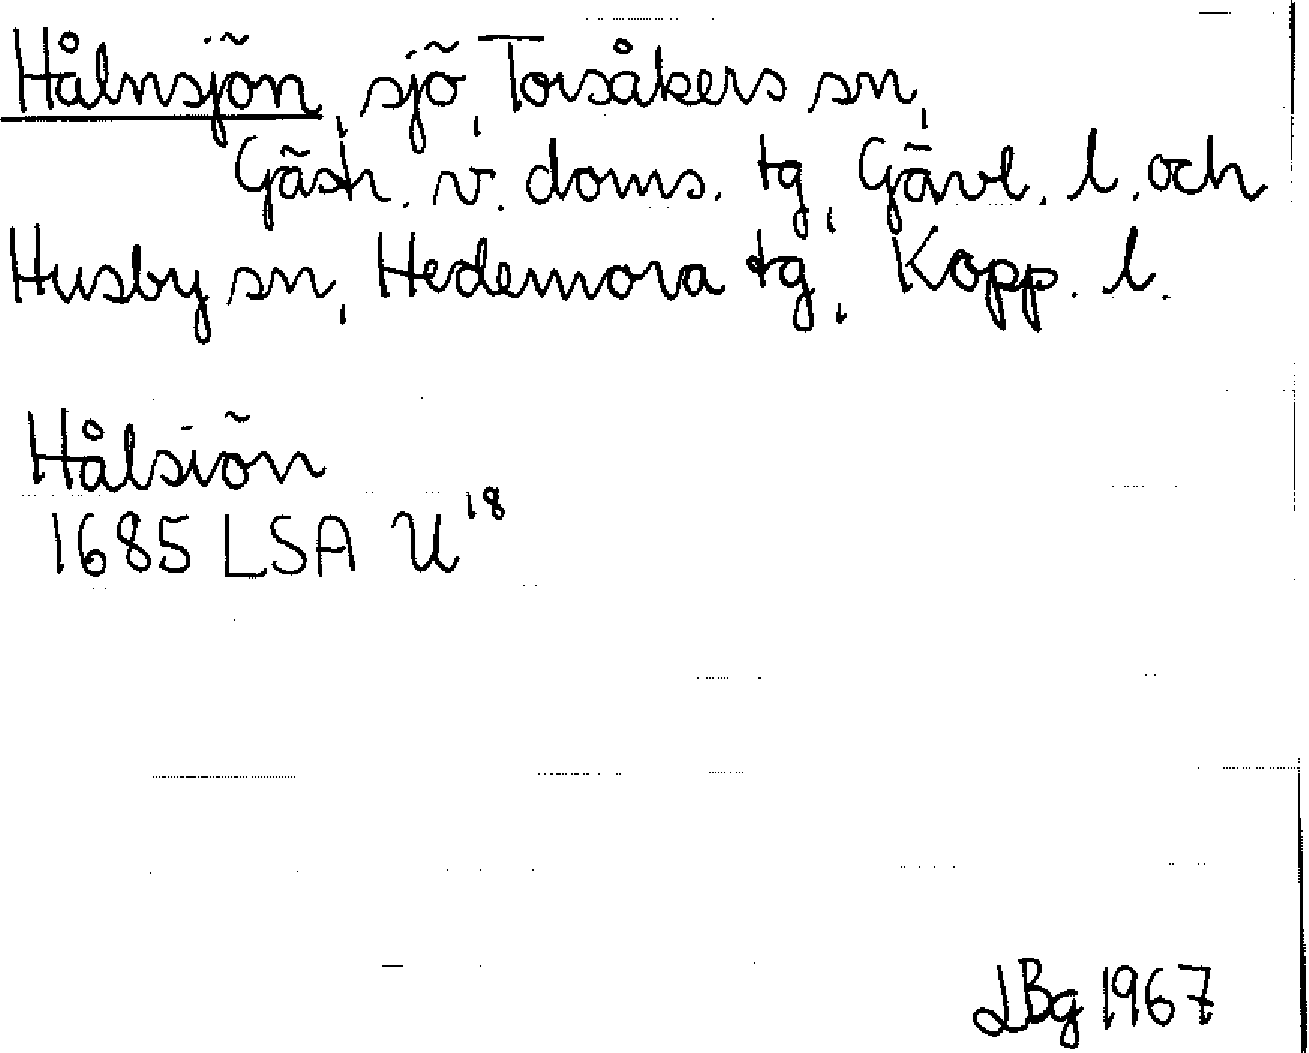 Hålnsjön, sjö, Torsåkers sn,
Gästr. v. doms. tg, Gävl. l. och
Husby sn, Hedemora tg, Kopp. l.
Hålsiön
1685 LSA U18
LBg 1967